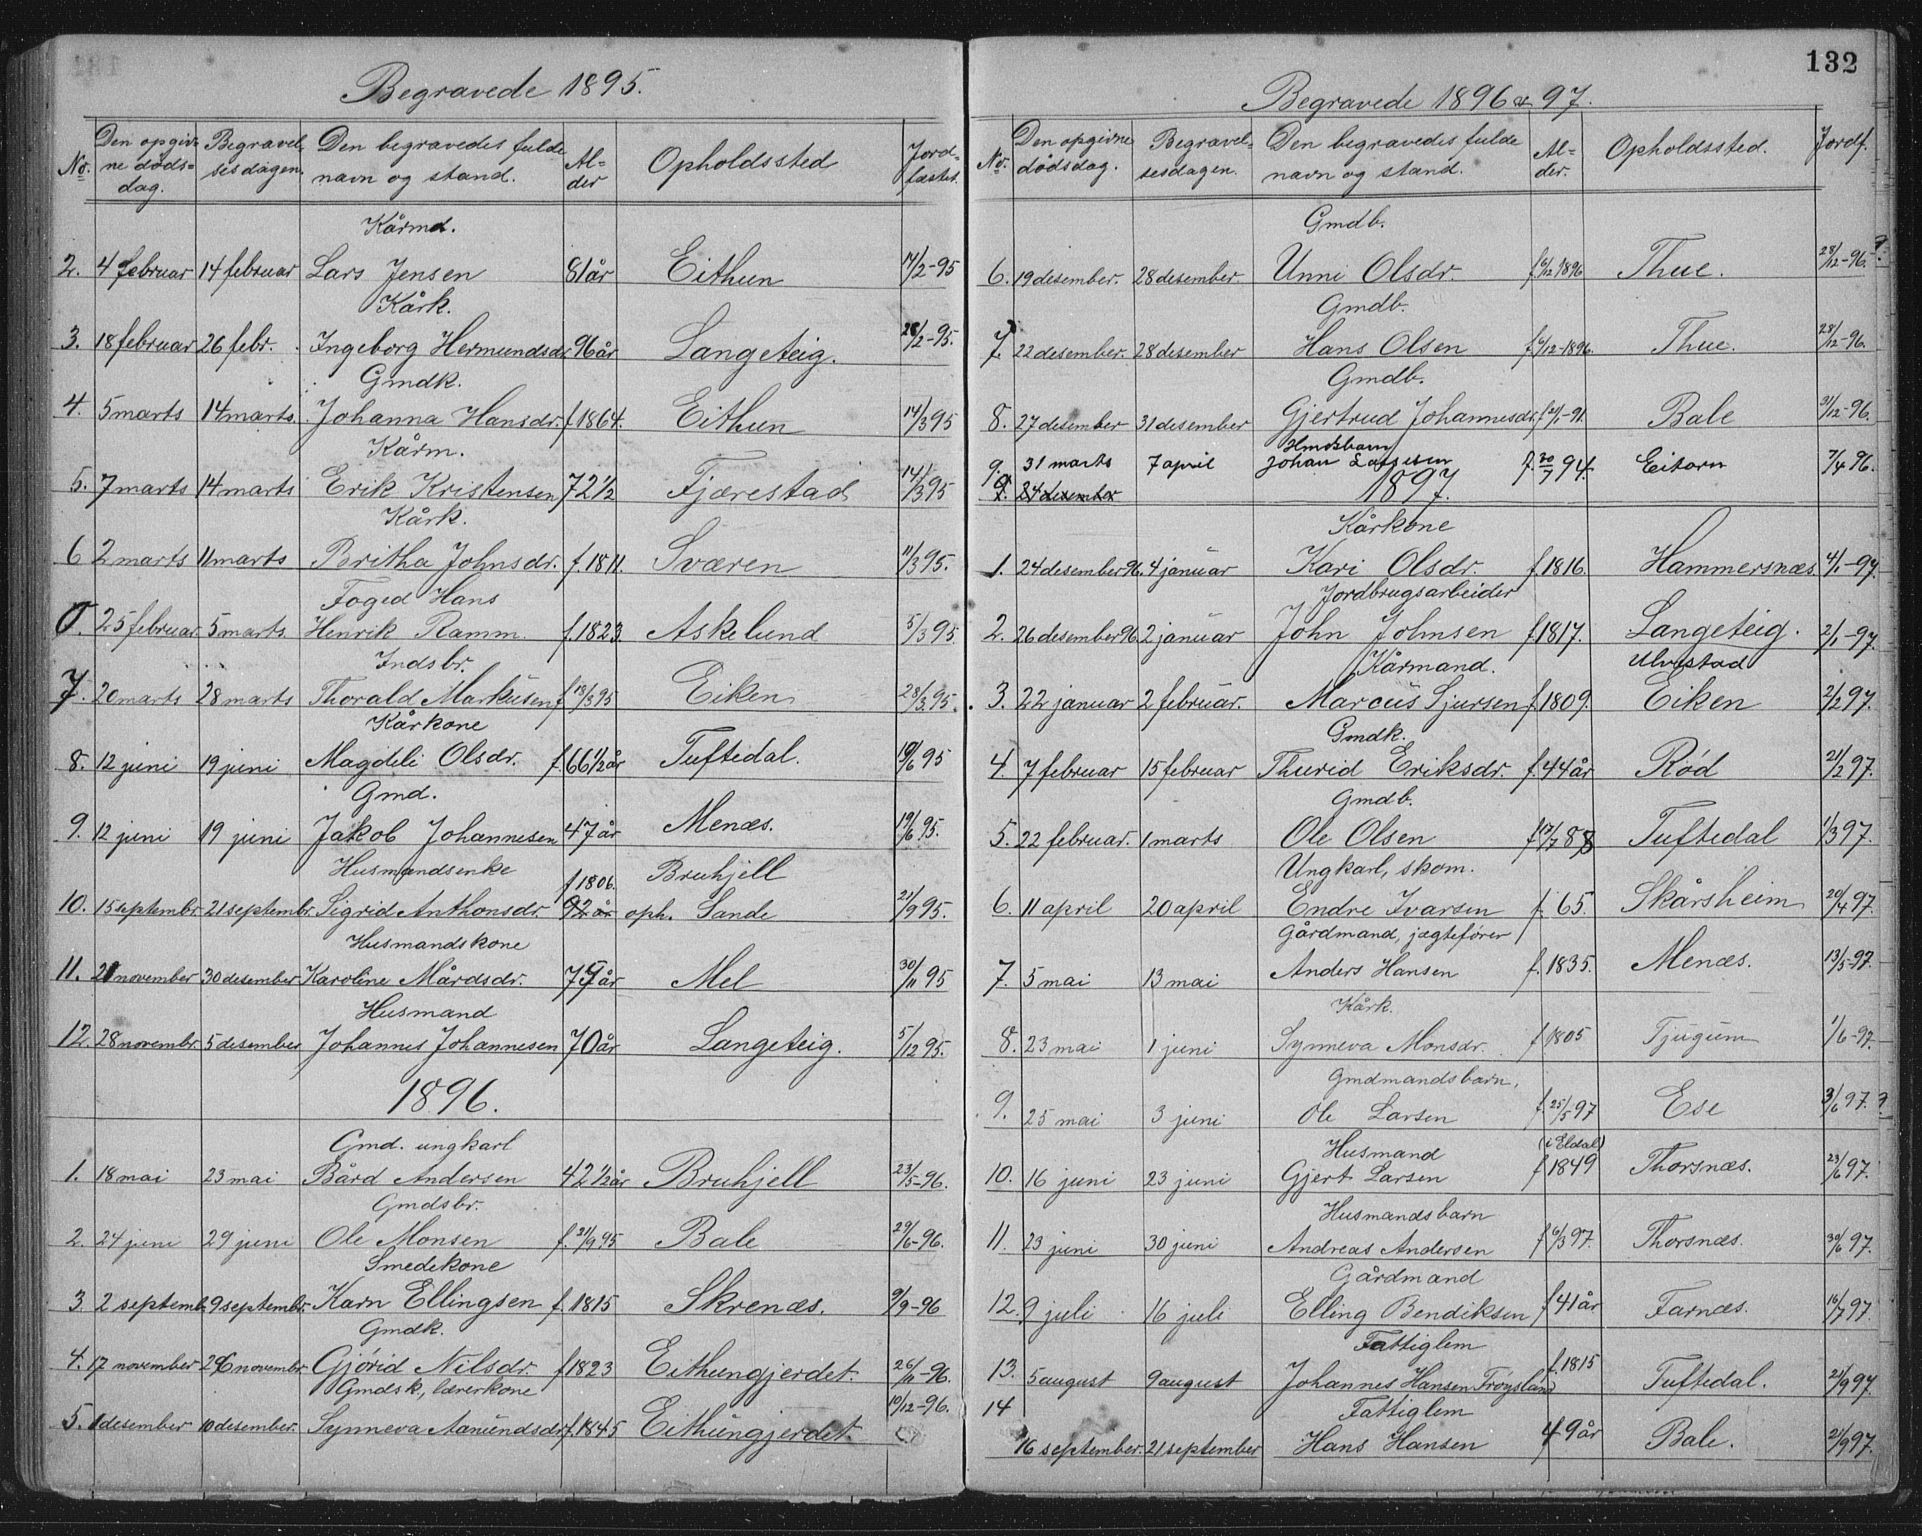 Begravede 1895.
No. Den opgivne dødsdag. Begravelsesdagen. Den begravedes fulde navn og stand. Alder Opholdssted Jordfæstet.
Kårmd.
2. 4 februar 14 februar Lars Jensen 81 år Eithun 17/2-95
Kårk.
3. 18 februar 26 febr. Ingeborg Hermundsdr. 96 år Langeteig. 28/2-95.
Gmdk.
4. 5 marts 14 marts. Johanna Hansdr. f. 1864. Eithun 14/3 95
Kårm.
5. 7 marts 14 marts Erik Kristensen 72 1/2 Fjærestad 14/3 95
Kårk.
6 2 marts 11 marts Britha Johnsdr. f. 1811. Sværen 11/3 95.
Foged Hans
0. 25 februar 5 marts. Henrik Ramm. f. 1823 Askelund 5/3 95
Indsbr.
7. 20 marts 28 marts Thorald Markusen f 13/3 95 Eiken 28/3 95.
Kårkone
8. 12 juni 19 juni Magdeli Olsdr. f. 66 1/2 år Tuftedal. 19/6 95
Gmd.
9. 12 juni 19 juni Jakob Johannesen 47 år Menæs. 19/6 95.
Husmandsenke f 1806. Bruhjell
10. 15 septembr. 21 septembr. Sigrid Anthonsdr. 92 år oph. Sande 21/9 95.
Husmandskone
11. 21 november 30 desember Karoline Mårdsdr. 79 år Mel 30/11 95
Husmand
12. 28 novembr. 5 desember Johannes Johannesen 70 år Langeteig. 5/12 95.
1896.
Gmd. ungkarl
1. 18 mai 23 mai Bård Andersen 42 1/2 år Bruhjell 23/5-96.
Gmdsbr.
2. 24 juni 29 juni Ole Monsen f. 21/9 95 Bale 29/6-96.
Smedekone
3. 2 septemb. 9 septembr. Karn Ellingsen f. 1815 Skrenæs. 9/9-96
Gmdk.
4. 17 november 26 novembr. Gjørid Nilsdr. f 1823 Eithungjerdet. 26/11-96.
Gmdsk, lærerkone 10/12-96.
5. 1 desember 10 desember. Synneva Aamundsdr f. 1845 Eithungjerdet
132
Begravede 1896 & 97.
No. Den opgivne dødsdag. Begravelsesdagen. Den begravedes fulde navn og stand. Alder. Opholdssted. Jordf.
Gmdb.
6. 19 desember. 28 desember. Unni Olsdr. f 6/12 1896 Thue. 28/12-96. ?
Gmdb.
7. 22 desember. 28 desember Hans Olsen f 6/12-1896. Thue. 28/12-96.
Gmdb.
8. 27 desember 31 desember Gjertrud Johannesdr. f 2/1-91. Bale 31/12-96.
Hmdsbarn
9. 31 marts 7 april Johan Larsen f. 20/7 94. Eitorn 7/4 96.
9. 24 desember 1897.
Kårkone
1. 24 desember 96. 4 januar Kari Olsdr. f. 1816. Hammersnæs. 4/1-97.
Jordbrugsarbeider
2. 26 desember 96. 2 januar John Johnsen f 1817. Langeteig. 2/1-97
Kårmand. Ulvestad
3. 22 januar 2 februar. Marcus Sjursen f. 1809. Eiken 2/2 97.
Gmdk.
4. 7 februar 15 februar Thurid Eriksdr. f. 44 år Rød 21/2 97.
Gmdb.
5. 22 februar. 1 marts Ole Olsen f 17/7 88 Tuftedal 1/3 97.
Ungkarl, skom.
6. 11 april 20 april Endre Ivarsen f. 65. Skårsheim 20/4 97.
Gårdmand, jægtefører
7. 5 mai 13 mai Anders Hansen f. 1835. Menæs. 13/5-97.
Kårk.
8. 23 mai 1 juni Synneva Monsdr. f 1805 Tjugum 1/6-97.
Gmdmandsbarn,
9. 25 mai 3 juni Ole Larsen f. 25/5 97 Ese 3/6 97. ?
Husmand (i Eldal)
10. 16 juni 23 juni Gjert Larsen f 1849 Thorsnæs. 23/6 97.
Husmandsbarn
11. 23 juni 30 juni Andreas Andersen f 6/3 97. Thorsnæs. 30/6 97.
Gårdmand
12. 9 juli 16 juli Elling Bendiksen f 41 år Farnæs. 16/7 97.
Fattiglem f. 1815
13. 5 august 9 august Johannes Hansen Trøysland Tuftedal. 21/9 97.
14 Fattiglem
16 september. 21 september Hans Hansen 49 år Bale. 21/9 97.